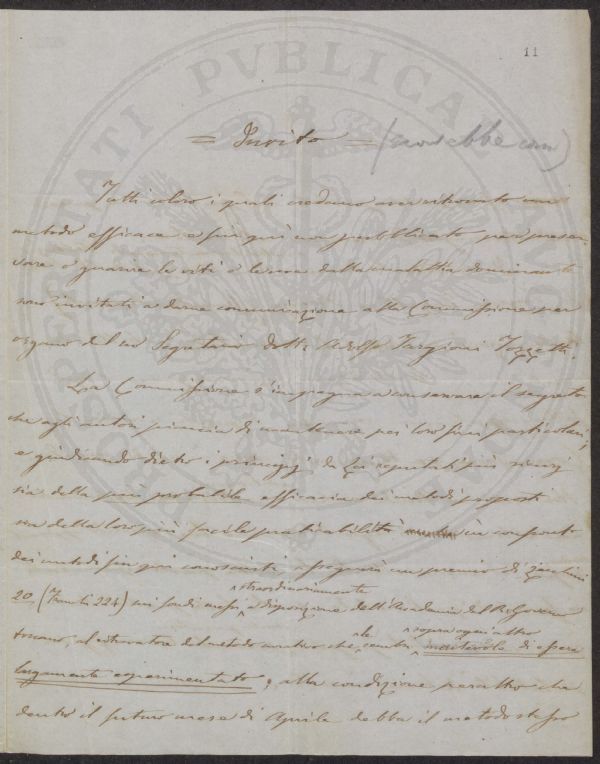 11
= Invito =
Tutti coloro i quali credano aver ritrovato un
metodo efficace e fin qui non pubblicato per preser-
vare o guarire le viti e le uva dalla malattia dominante
sono invitati a darne comunicazione alla Commissione per
organo del suo Segretario Dott. Adolfo Targioni Tozzetti.
La Commissione s'impegna a conservare il segreto
che agli autori piaccia di mantenere pei loro fini particolari,
e giudicando dietro i principj da Lei reputati più
sia della più probabile efficacia dei metodi proposti
sia della loro più facile praticabilità in confronto
dei metodi fin qui conosciuti assegnerà un premio di Zecchini
20 (Fran.ti 224) sui fondi messi straordinariamente a disposizione dell'Accademia del R. Governo
toscano, al ritrovatore del metodo curativo che le sembri sopra ogni altro meritevole di essere
largamente esperimentato, alla condizione peraltro che
dentro il futuro mese di Aprile debba il metodo stesso
PROSPERITATI PVBLICAE AVGENDAE